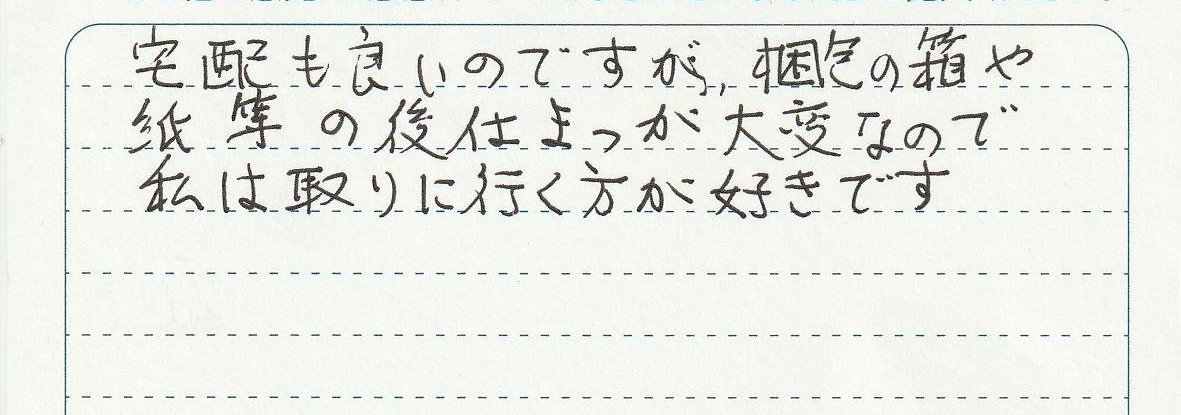 宅配も良いのですが、梱包の箱や
紙等の後仕まつが大変なので
私は取りに行く方が好きです